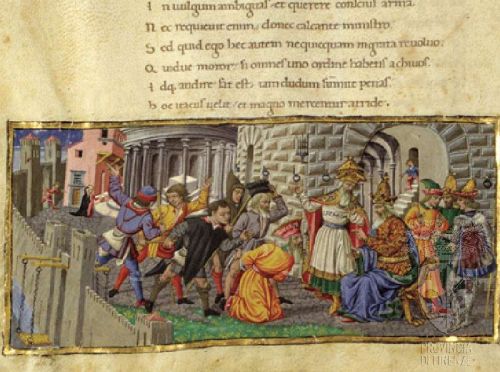 I n uulgum ambiguas et querere conscius arma.
N ec requieuit enim, donec calcante ministro.
S ed quid ego hec autem nequicquam ingrata reuoluo.
Q uidue moror? si omnes uno ordine habetis achiuos.
I dq. audire sat est, iam dudum sumite penas.
h oc itacus uelit, et magno mercentur atride.
PROVINCIA
DI FIRENZE